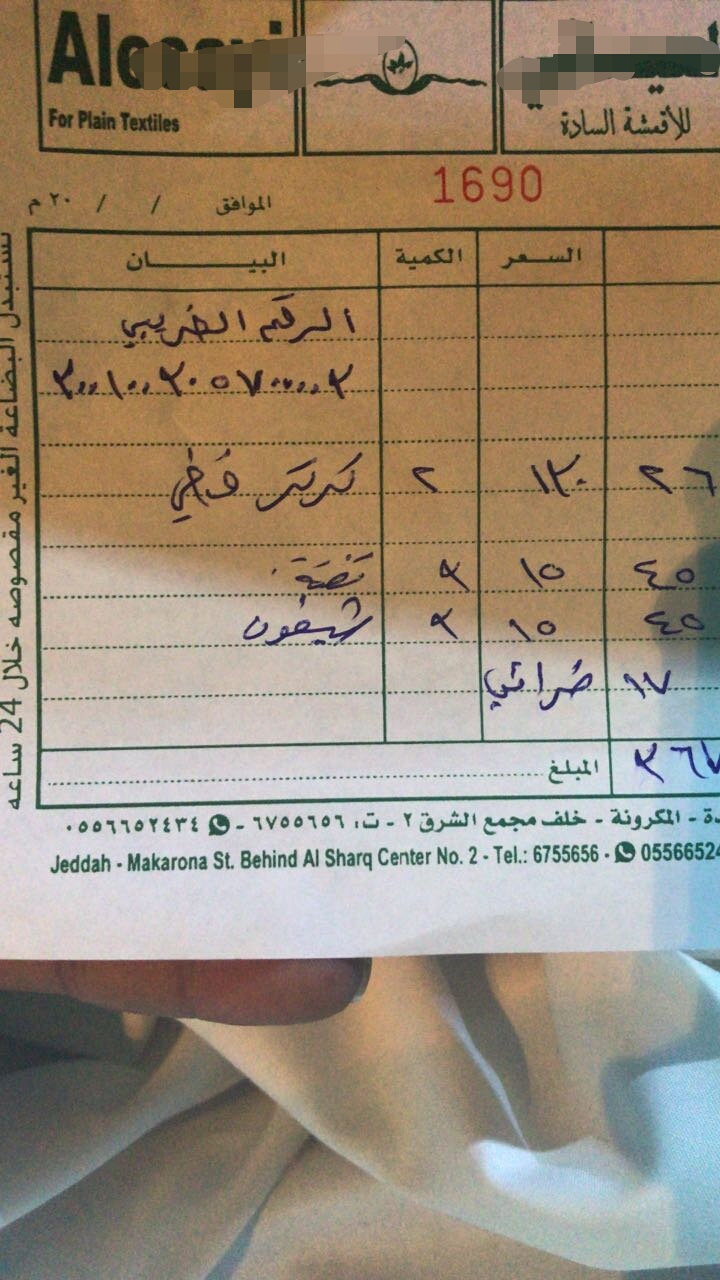 For Plain Textiles
للأقمشة السادة
1690
الموافق / / ٢٠ م
البيــــان الكمية السعر
الرقم الضريبي
٣٠٠١٠٠٣٠٥٧٠٠٠٠٣
٢ ١٣٠ ٢٦
٣ ١٥ ٤٥
شيفون ٣ ١٥ ٤٥
ضرائب ١٧
المبلغ ٣٦٧
دة - المكرونة - خلف مجمع الشرق ٢ - ت: ٦٧٥٥٦٥٦ - ٠٥٥٦٦٥٢٤٣٤
Jeddah - Makarona St. Behind Al Sharq Center No. 2 - Tel.: 6755656 - 05566524
تستبدل البضاعة الغير مقصوصه خلال 24 ساعه